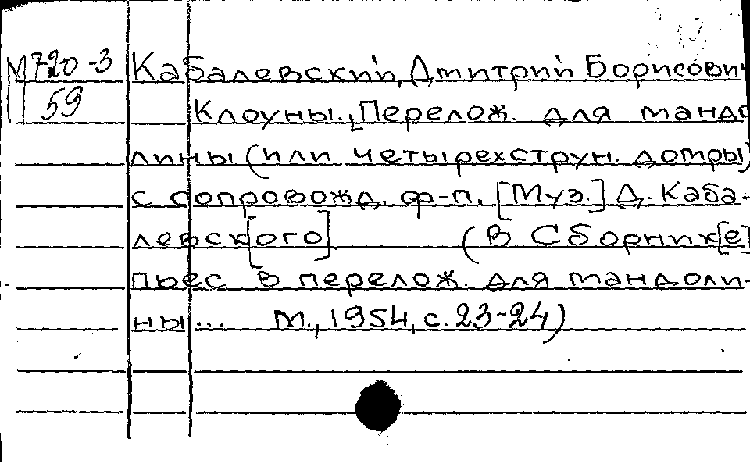 М720-3 Кабалевский, Дмитрий Борисович
59 Клоуны. Перелож. для мандо
лины (или четырехструн. домры)
с сопровожд. ф-п. [Муз.] Д. Каба-
левск[ого] (В Сборник[е]
пьес в перелож. для мандоли-
ны... М., 1954, с. 23-24)